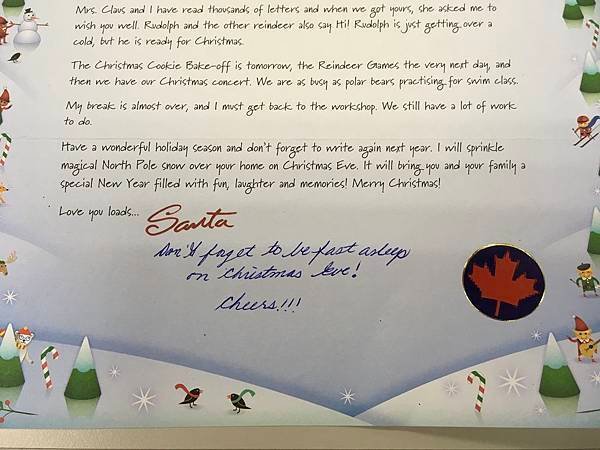 Mrs. Claus and I have read thousands of letters and when we got yours, she asked me to
wish you well. Rudolph and the other reindeer also say Hi! Rudolph is just getting over a
cold, but he is ready for Christmas.
The Christmas Cookie Bake-off is tomorrow, the Reindeer Games the very next day, and
then we have our Christmas concert. We are as busy as polar bears practising for swim class.
My break is almost over, and I must get back to the workshop. We still have a lot of work
to do.
Have a wonderful holiday season and don't forget to write again next year. I will sprinkle
magical North Pole snow over your home on Christmas Eve. It will bring you and your family a
special New Year filled with fun, laughter and memories! Merry Christmas!
Love you loads... Santa
Don't forget to be fast asleep
on Christmas Eve!
Cheers!!!